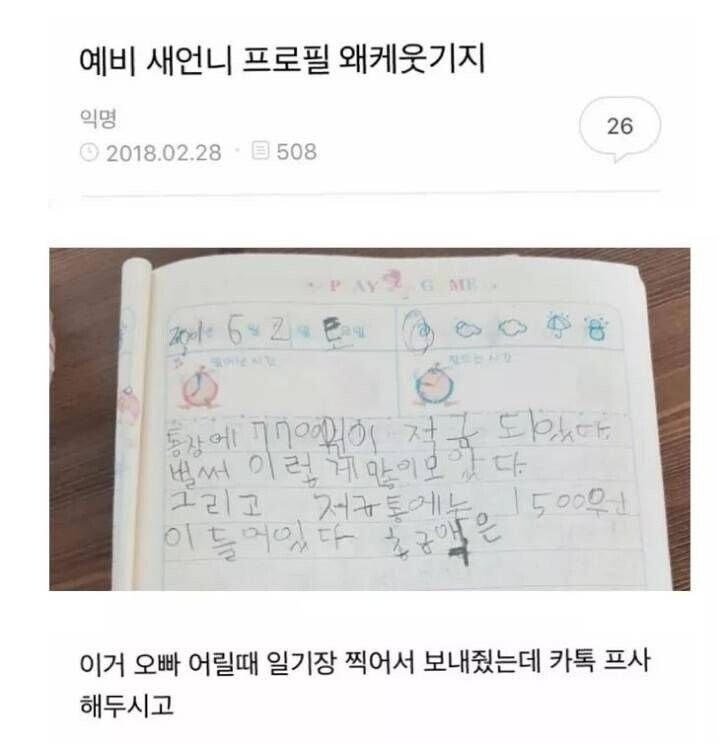 예비 새언니 프로필 왜케웃기지
익명
2018.02.28 · 508
26
P AY G ME
년 6월 2일 토요일
일어난시간
잠드는시간
통장에 7700원이 저금 되있다
벌써 이렇게많이모았다
그리고 저금통에는 1500원
이 들어있다 총금액은
이거 오빠 어릴때 일기장 찍어서 보내줬는데 카톡 프사
해두시고